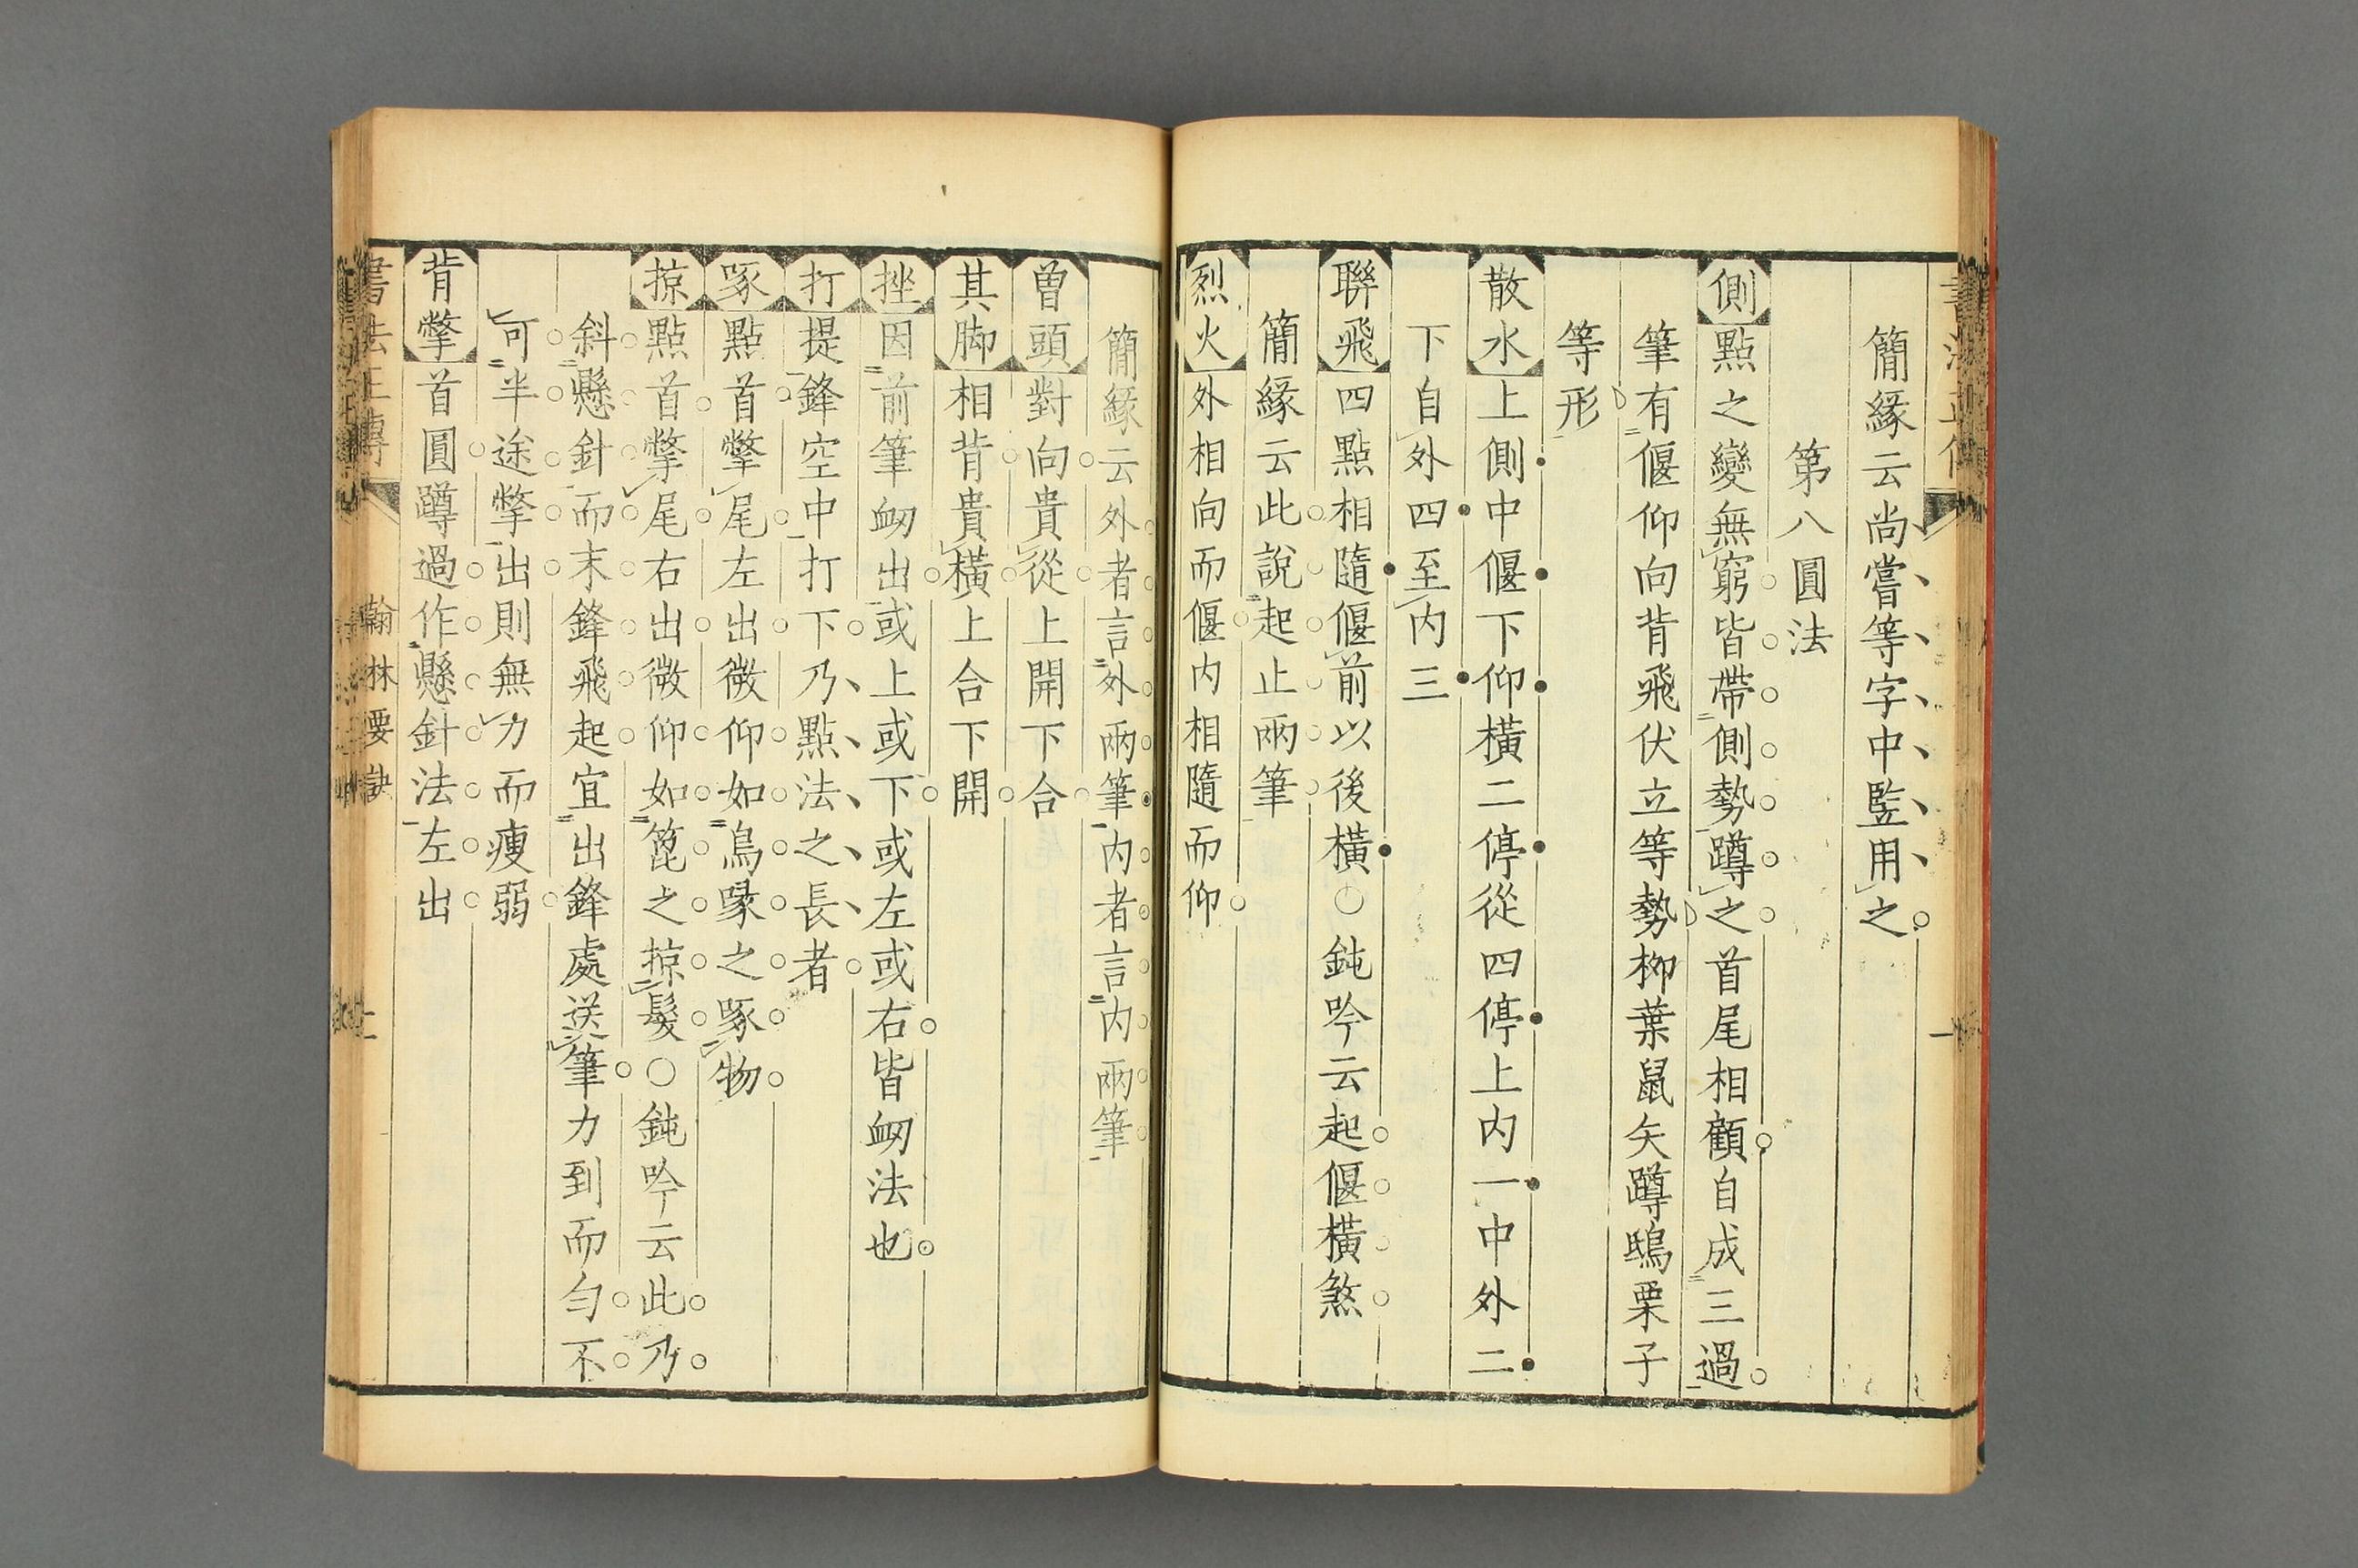 簡緣云尚嘗等字中監用之
第八圓法
側點之變無窮皆帶側勢蹲之首尾相顧自成三過
筆有偃仰向背飛伏立等勢柳葉鼠矢蹲鴟栗子
等形
散水上側中偃下仰橫二停從四停上内一中外二
下自外四至内三
聯飛四點相隨偃前以後橫○鈍吟云起偃橫煞
簡緣云此說起止兩筆
烈火外相向而偃内相隨而仰
簡緣云外者言外兩筆内者言内兩筆
曽頭對向貴從上開下合
其脚相背貴橫上合下開
挫因前筆衂出或上或下或左或右皆衂法也
打提鋒空中打下乃點法之長者
啄點首撆尾左出微仰如鳥喙之啄物
掠點首撆尾右出微仰如篦之掠髮○鈍吟云此乃
斜懸針而末鋒飛起宜出鋒處送筆力到而勻不
可半途撆出則無力而瘦弱
背撆首圓蹲過作懸針法左出
書法正傳
翰林要訣